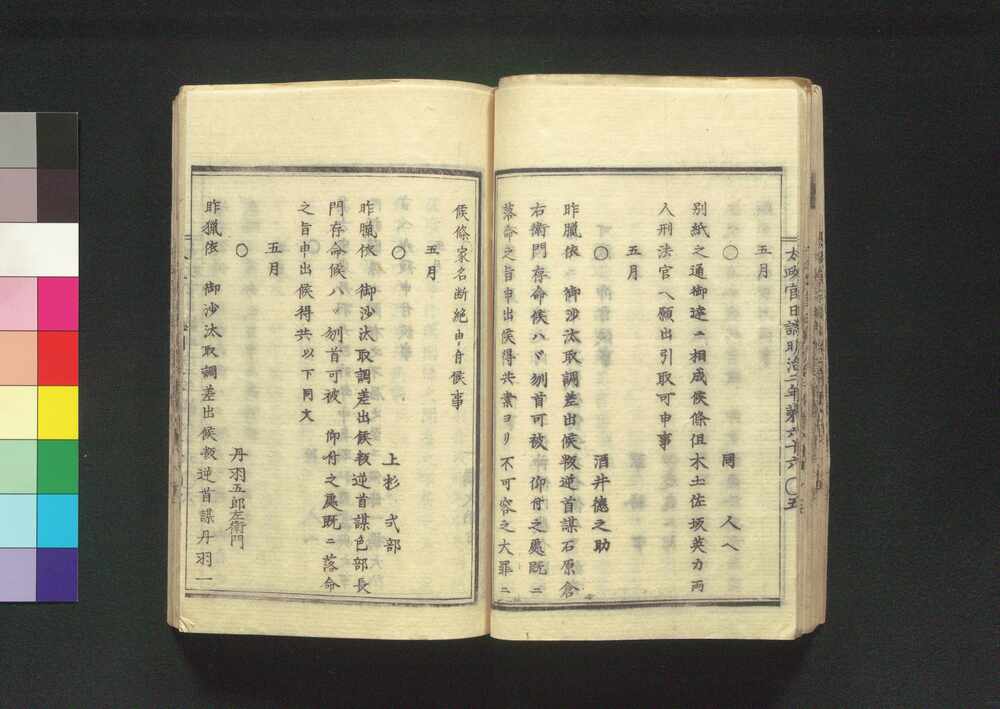 太政官日誌明治二年第六十六 〇五
五月
〇
同人へ
別紙之通御達ニ相成候條但木土佐坂英力両
人刑法官へ願出引取可申事
五月
〇
酒井徳之助
昨臘依 御沙汰取調差出候叛逆首謀石原倉
右衛門存命候ハヾ刎首可被 仰付之處既ニ
落命之旨申出候得共素ヨリ不可容之大罪ニ
候條家名断絶由
候事
五月
〇
上杉式部
昨臘依 御沙汰取調差出候叛逆首謀色部長
門存命候ハヾ刎首可被 仰付之處既ニ落命
之旨申出候得共 以下同文
五月
〇
丹羽五郎左衛門
昨臘依 御沙汰取調差出候叛逆首謀丹羽一